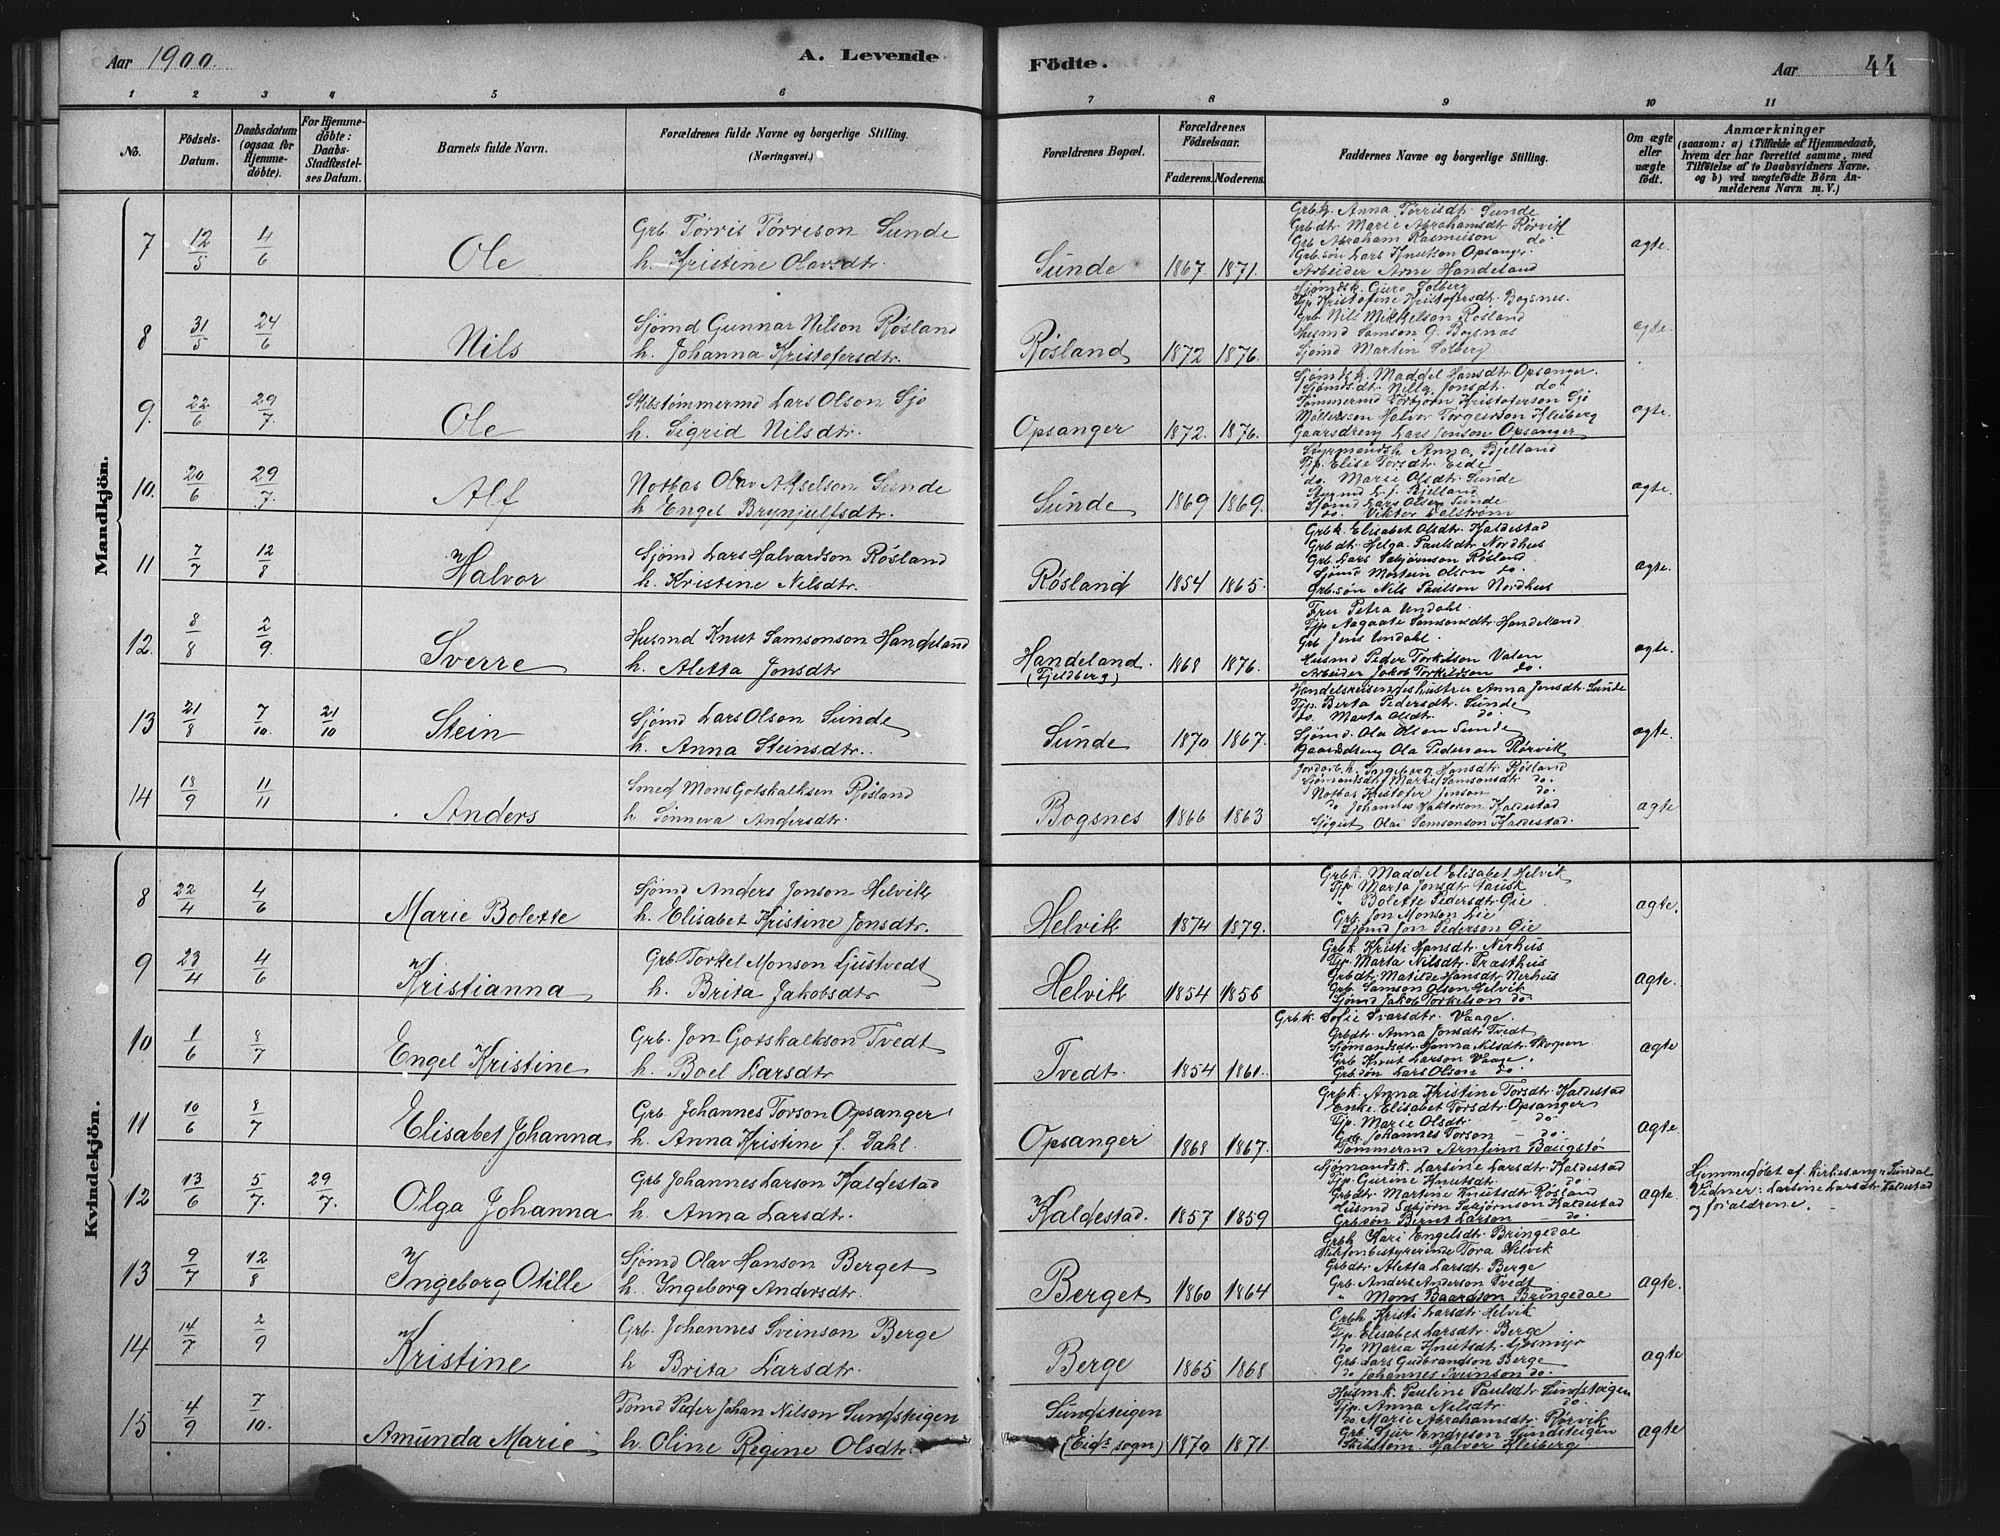 Aar 1900. A. Levende Födte. Aar 44
1 2 3 4 5 6 7 8 9 10 11
No.
Födsels-Datum.
Daabsdatum (ogsaa for Hjemme-döbte).
For Hjemme-döbte: Daabs-Stadfæstel-ses Datum.
Barnets fulde Navn.
Forældrenes fulde Navne og borgerlige Stilling. (Næringsvei.)
Forældrenes Bopæl.
Forældrenes Födselsaar. Faderens. Moderens.
Faddernes Navne og borgerlige Stilling.
Om ægte eller uægte födt.
Anmærkninger
(saasom: a) i Tilfælde af Hjemmedaab,
hvem der har forrettet samme, med
Tilföielse af to Daabsvidners Navne.
og b) ved uægtefödte Börn An-
melderens Navn m. V.)
Mandkjön.
7 12/5 4/6 Ole
Grb Tørris Tørrison Sunde
h. Kristine Olavsdtr.
Sunde 1867. 1871.
Grb.k. Anna Tørrisdtr. Sunde
Grb.dtr Marie Abrahamsdtr Rørvik
Grb Abraham Rasmusson do.
Grb.søn Lars Knutson Opsanger
Arbeider Arne Handeland
ægte.
8 31/5 24/6 Nils
Sjømd Gunnar Nilson Røsland
h. Johanna Kristofersdtr.
Røsland 1872 1876.
Sjømdsk. Guro Solberg
Tjp Kristofine Kristofersdtr. Bogsnes.
Grb Nils Mikkelson Røsland
Husmd Samson G. Bogsnes
Sjømd Martin Solberg
ægte.
9. 22/6 29/7. Ole
Skibstømmermd Lars Olson Sjo
h. Sigrid Nilsdtr.
Opsanger 1872. 1876.
Sjømdsk. Maddel Hansdtr Opsanger.
Sjømdsdtr. Jonsdtr. do.
Tømmermd Torbjørn Kristoferson Sjo
Halvor Torgeirson Kleiberg
Gaarsdreng Lars Jonson Opsanger
ægte.
10. 20/6 29/7. Alf
Notbas Olav Akselson Sunde
h Engel Brynjulfsdtr.
Sunde 1869 1869.
Styrmandsh Anna Bjelland
Tjp. Elise Torsdtr. Eide
do. Marie Olsdtr Sunde
Styrmd L. J. Bjelland
Sjømd Lars Olson Sunde
do. Viktor
ægte.
11 7/7 12/8 Halvor
Sjømd Lars Halvardson Røsland
h. Kristine Nilsdtr.
Røsland 1854 1865.
Grb.k. Elisabet Olsdtr. Haldestad
Grb.dtr. Helga Paulsdtr Nordhus
Grb Lars Sebjørnson Røsland
Sjømd Mortein Olson do.
Grb.søn Nils Paulson Nordhus
ægte.
12. 8/8 2/9. Sverre
Husmd Knut Samsonson Handeland
h. Aletta Jonsdtr
Handeland. (Fjeldberg) 1868 1876.
Fru Petra Undahl.
Tjp Aagaate Samsonsdtr Handeland
Grb Jens Undahl.
Husmd Peder Torkilson Valen
Arbeider Jakob Torkildson do.
ægte.
13 21/8 7/10. 21/10 Stein
Sjømd Lars Olson Sunde
h. Anna Steinsdtr.
Sunde 1870 1867.
Handelsreisendeshustru Anna Jonsdtr. Sunde
Tjp. Berta Pedersdtr. Sunde
do. Marta Olsdtr. do
Sjømd. Ola Olson Sunde
Gaardsdreng Ola Pederson Rørvik
ægte.
14 18/9 11/11 Anders
Smed Mons Gotskalksen Røsland
h Sønneva Andersdtr.
Bogsnes 1866 1863
Jordarb.h. Ingeborg Hansdtr Røsland
Sjømandsdtr Marie Samsonsdtr do.
Notbas Kristofer Jonson do.
do Johannes Haktorson Haldestad
Sjøgut Olai Samsonson Haldestad.
ægte
Kvindekjön.
8 22/4 4/6 Marie Bolette
Sjømd Anders Jonson Helvik
h. Elisabet Kristine Jonsdtr.
Helvik 1874 1879.
Grbk. Maddel Elisabet Helvik
Tjp. Marta Jonsdtr Tausk
" Bolette Pedersdtr Øie
Grb. Jon Monson Lie
Sjømd Jon Pederson Øie
ægte.
9 23/4 4/6 Kristianna
Grb Torkel Monson Ljustvedt
h. Brita Jakobsdtr
Helvik 1854 1856
Grb.k Kristi Hansdtr. Nerhus
Tjp. Marta Nilsdtr. Præsthus
Grbdtr. Matilde Hansdtr Nerhus
Grb. Samson Olson Helvik
Sjømd Jakob Torkelson do.
ægte.
10 1/6 8/7 Engel Kristine
Grb. Jon Gotskalkson Tvedt
h. Boel Larsdtr
Tvedt. 1854 1861.
Grb.k. Sofie Ivarsdtr. Vaage.
Grbdtr. Anna Jonsdtr Tvedt
Sjømandsdtr. Manna Nilsdtr.
Grb Knut Larson Vaage.
Grb.søn Lars Olson do.
ægte
11 10/6 8/7 Elisabet Johanna
Grb. Johannes Torson Opsanger
h. Anna Kristine f. Dahl.
Opsanger 1868 1867.
Grb.k. Anna Kristine Torsdtr. Haldestad
Enke. Elisabet Torsdtr. Opsanger
Tjp. Marie Olsdtr. — do.
Grb. Johannes Torson — do.
Tømmermd Arnfinn Baugstø
ægte.
12 13/6 5/7. 29/7. Olga Johanna
Grb Johannes Larson Haldestad
h. Anna Larsdtr.
Haldestad. 1857 1859
Sjømandsk. Larsine Larsdtr. Haldestad
Tjp. Gurine Knutsdtr. do.
Grbdtr. Martine Knutsdtr. Røsland
Husmd Sebjørn Sebjørnson Haldestad
Grb.søn Bernt Larson — do.
ægte.
Hjemmedøbt af kirkesanger Sundal
Vidner: Larsine Larsdtr Haldestad
og forældrene.
13 9/7 12/8 Ingeborg Otille
Sjømd Olav Hanson Berget
h. Ingeborg Andersdtr.
Berget 1860 1864
Grb.k. Kari Engelsdtr. Bringedal
Telefonbestyrerinde Tora Helvik
Grbdtr. Aletta Larsdtr. Berge
Grb. Anders Anderson Tvedt
" Mons Baardson Bringedal
ægte.
14 14/7 2/9 Kristine
Grb. Johannes Sveinson Berge
h Brita Larsdtr.
Berge 1865 1868
Grb.h. Kristi Larsdtr. Helvik
Tjp. Elisabet Larsdtr. Berge
do Maria Knutsdtr.
Grb. Lars Gudbrandson Berge
do Johannes Sveinson do.
ægte
15 4/9 7/10. Amunda Marie
Tømd Peder Johan Nilson Sundsteigen
h. Oline Regine Olsdtr.
Sundsteigen (Eids sogn) 1870 1871.
Husm.k. Pauline Paulsdtr Sundsteigen
Tjp. Anna Nilsdtr. do.
do. Marie Abrahamsdtr. Rørvik
Grb. Sjur Endreson Sundsteigen
Skibstøm. Halvor Kleiberg
ægte